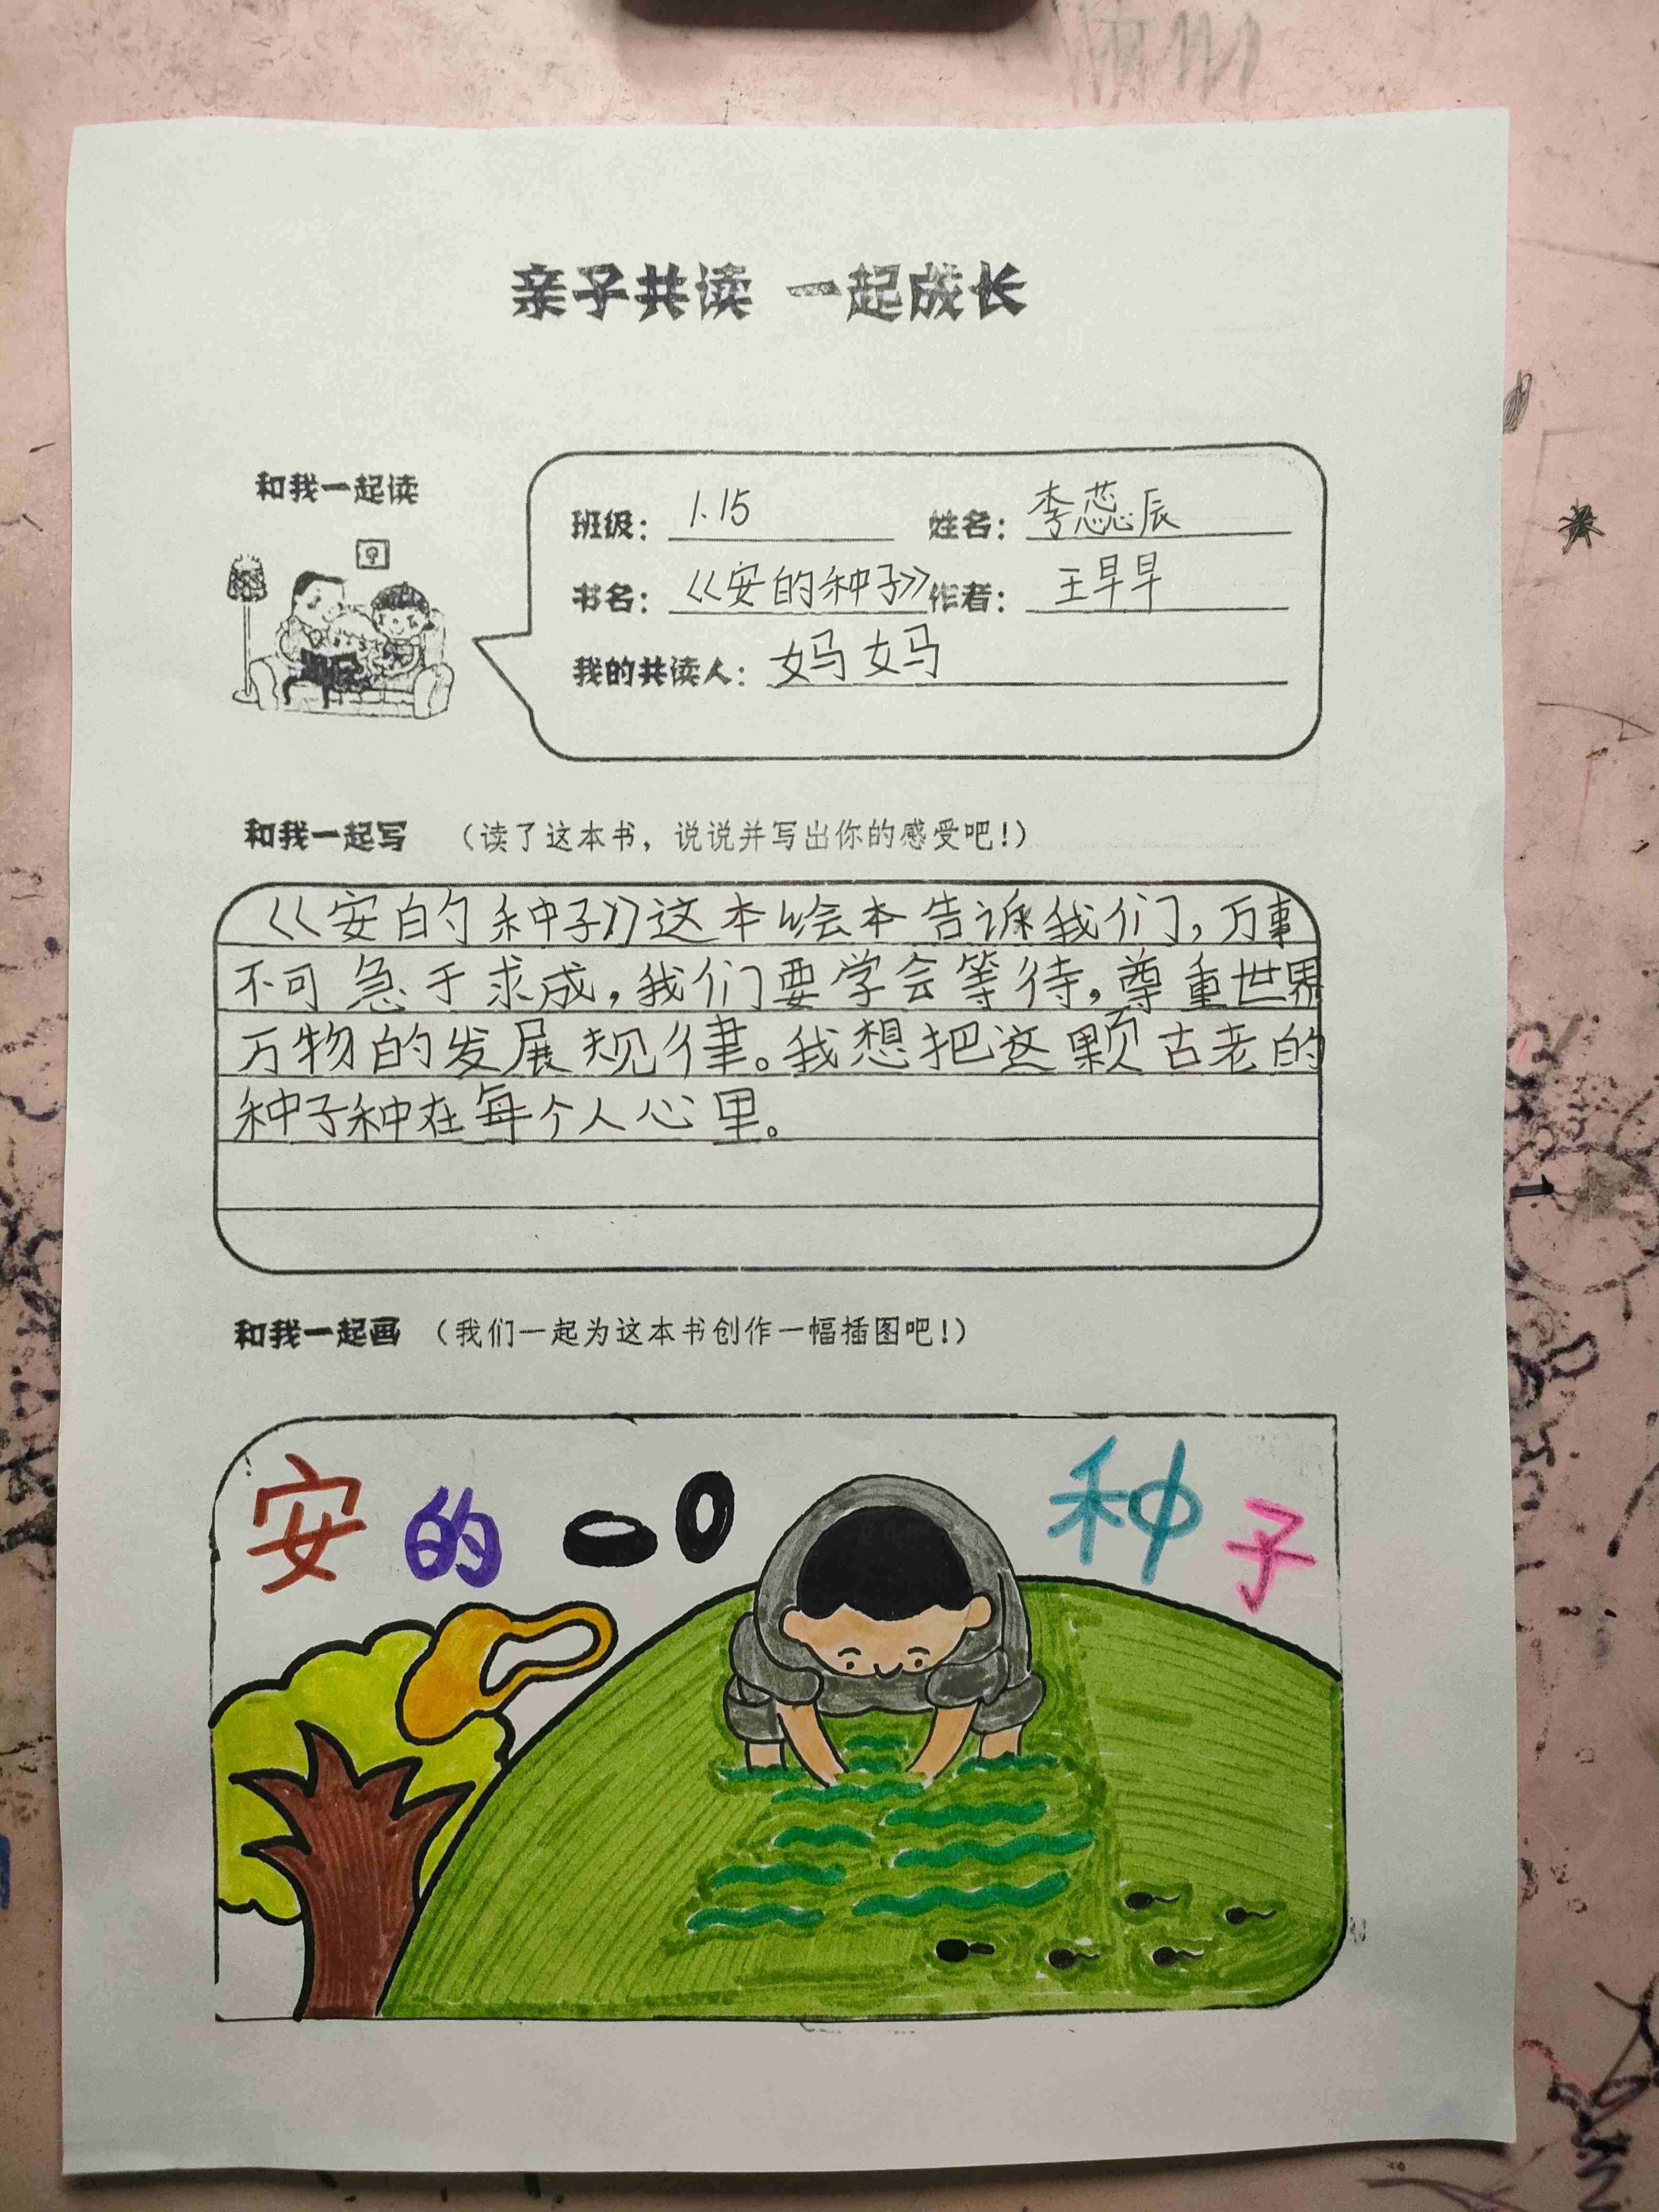 亲子共读 一起成长
和我一起读
班级: 1.15 姓名: 李蕊辰
书名: 《安的种子》 作者: 王早早
我的共读人: 妈妈
和我一起写 (读了这本书, 说说并写出你的感受吧!)
《安的种子》这本绘本告诉我们,万事
不可急于求成,我们要学会等待,尊重世界
万物的发展规律。我想把这颗古老的
种子种在每个人心里。
和我一起画 (我们一起为这本书创作一幅插图吧!)
安的 种子